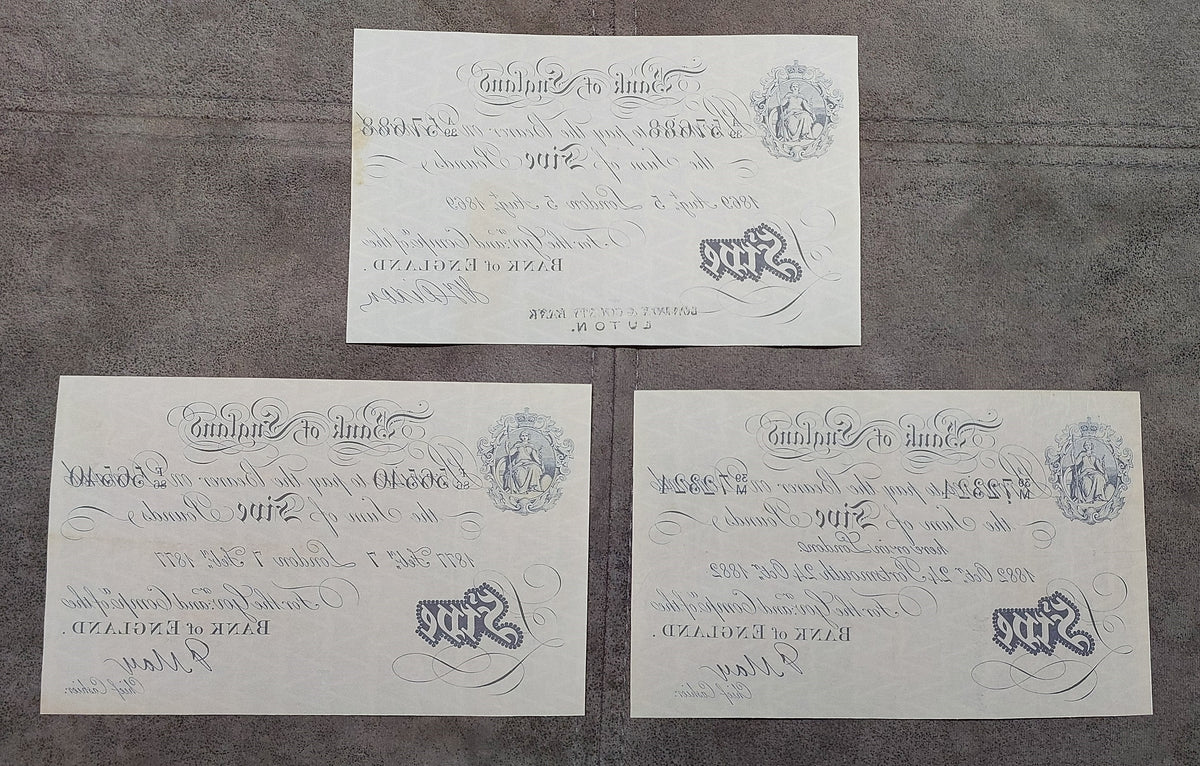 Bank of England
57688 to pay the Bearer on 57688
the Sum of Five Pounds
1869 Augt. 5 London 5 Augt. 1869
For the Govr. and Compa. of the
Five
BANK of ENGLAND.
LONDON & COUNTY BANK
LUTON.
Bank of England
56540 to pay the Bearer on 56540
the Sum of Five Pounds
1877 Feby. 7 London 7 Feby. 1877
For the Govr. and Compa. of the
Five
BANK of ENGLAND.
F May
Chief Cashier.
Bank of England
72324 to pay the Bearer on 72324
the Sum of Five Pounds
here or in London
1882 Octr. 24 Portsmouth 24 Octr. 1882
For the Govr. and Compa. of the
Five
BANK of ENGLAND.
F May
Chief Cashier.